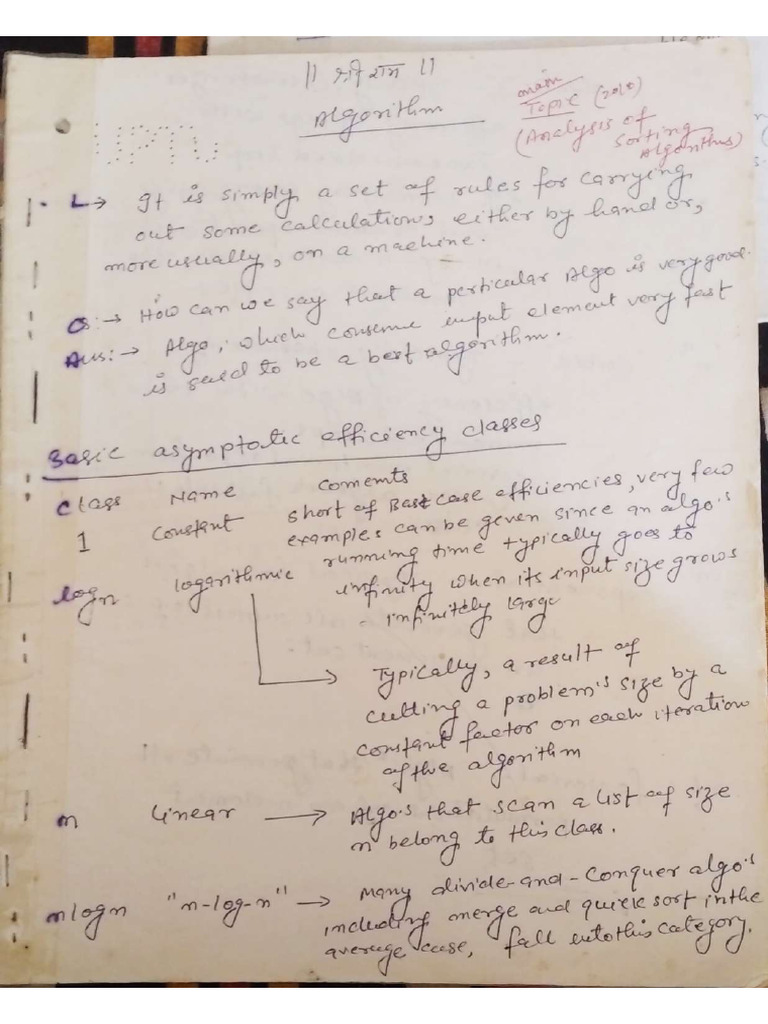 || श्री राम ||
Algorithm
main
Topic (2010)
(Analysis of
Sorting
Algorithms)
UPTU
1. L→ It is simply a set of rules for carrying
out some calculation, either by hand or,
more usually, on a machine.
Q:→ How can we say that a perticular Algo is very good.
Ans:→ Algo, which consume input element very fast
is said to be a best algorithm.
Basic asymptotic efficiency classes
Class Name Coments
1 Constant short of Best case efficiencies, very few
examples can be given since an algo's
running time typically goes to
infinity when its input size grows
infinitely large
logn logarithmic
Typically, a result of
cutting a problem's size by a
constant factor on each iteration
of the algorithm
n Linear → Algo's that scan a list of size
n belong to this class.
nlogn "n-log-n" → Many divide-and-Conquer algo's
including merge and quick sort in the
average case, fall into this category.